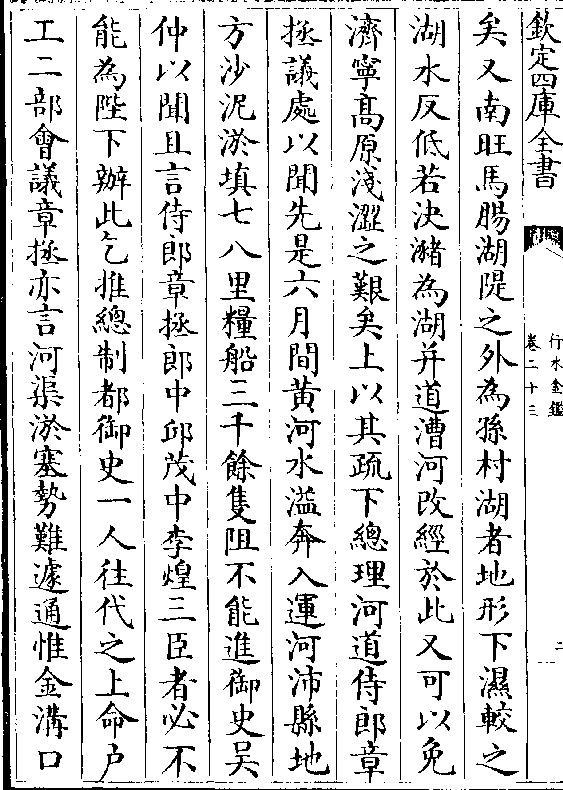 欽定四庫全書
行水金鑑
卷二十三
二
矣又南旺馬腸湖隄之外為孫村湖者地形下濕較之
湖水反低若決瀦為湖并道漕河改經於此又可以免
濟寧高原淺澀之艱矣上以其疏下總理河道侍郎章
拯議處以聞先是六月間黄河水溢奔入運河沛縣地
方沙泥淤填七八里糧船三千餘隻阻不能進御史吴
仲以聞且言侍郎章拯郎中邱茂中李煌三臣者必不
能為陛下辦此乞推總制都御史一人往代之上命户
工二部會議章拯亦言河渠淤塞勢難遽通惟金溝口